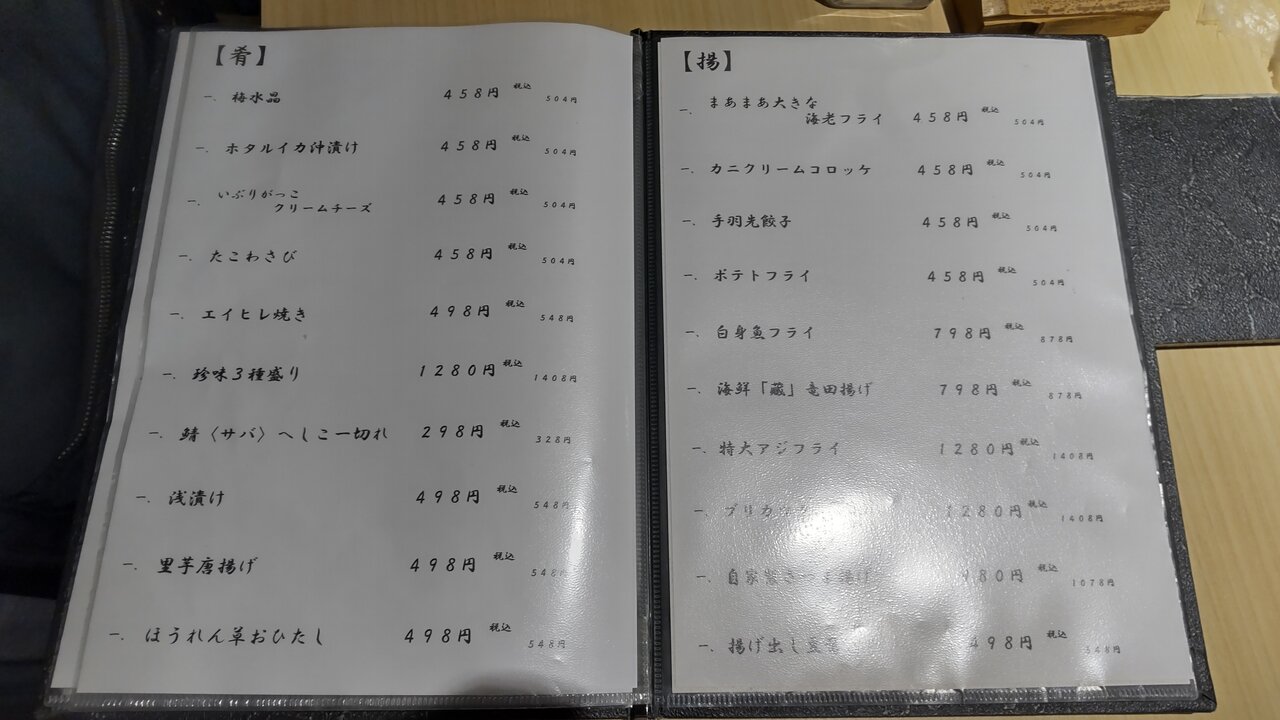 【肴】
一. 梅水晶 458円 税込 504円
一. ホタルイカ沖漬け 458円 税込 504円
一. いぶりがっこ
クリームチーズ 458円 税込 504円
一. たこわさび 458円 税込 504円
一. エイヒレ焼き 498円 税込 548円
一. 珍味3種盛り 1280円 税込 1408円
一. 鯖〈サバ〉へしこ一切れ 298円 税込 328円
一. 浅漬け 498円 税込 548円
一. 里芋唐揚げ 498円 税込 548円
一. ほうれん草おひたし 498円 税込 548円
【揚】
一. まあまあ大きな
海老フライ 458円 税込 504円
一. カニクリームコロッケ 458円 税込 504円
一. 手羽先餃子 458円 税込 504円
一. ポテトフライ 458円 税込 504円
一. 白身魚フライ 798円 税込 878円
一. 海鮮「蔵」竜田揚げ 798円 税込 878円
一. 特大アジフライ 1280円 税込 1408円
一. 1280円 税込 1408円
一. 980円 税込 1078円
一. 揚げ出し豆腐 498円 税込 548円